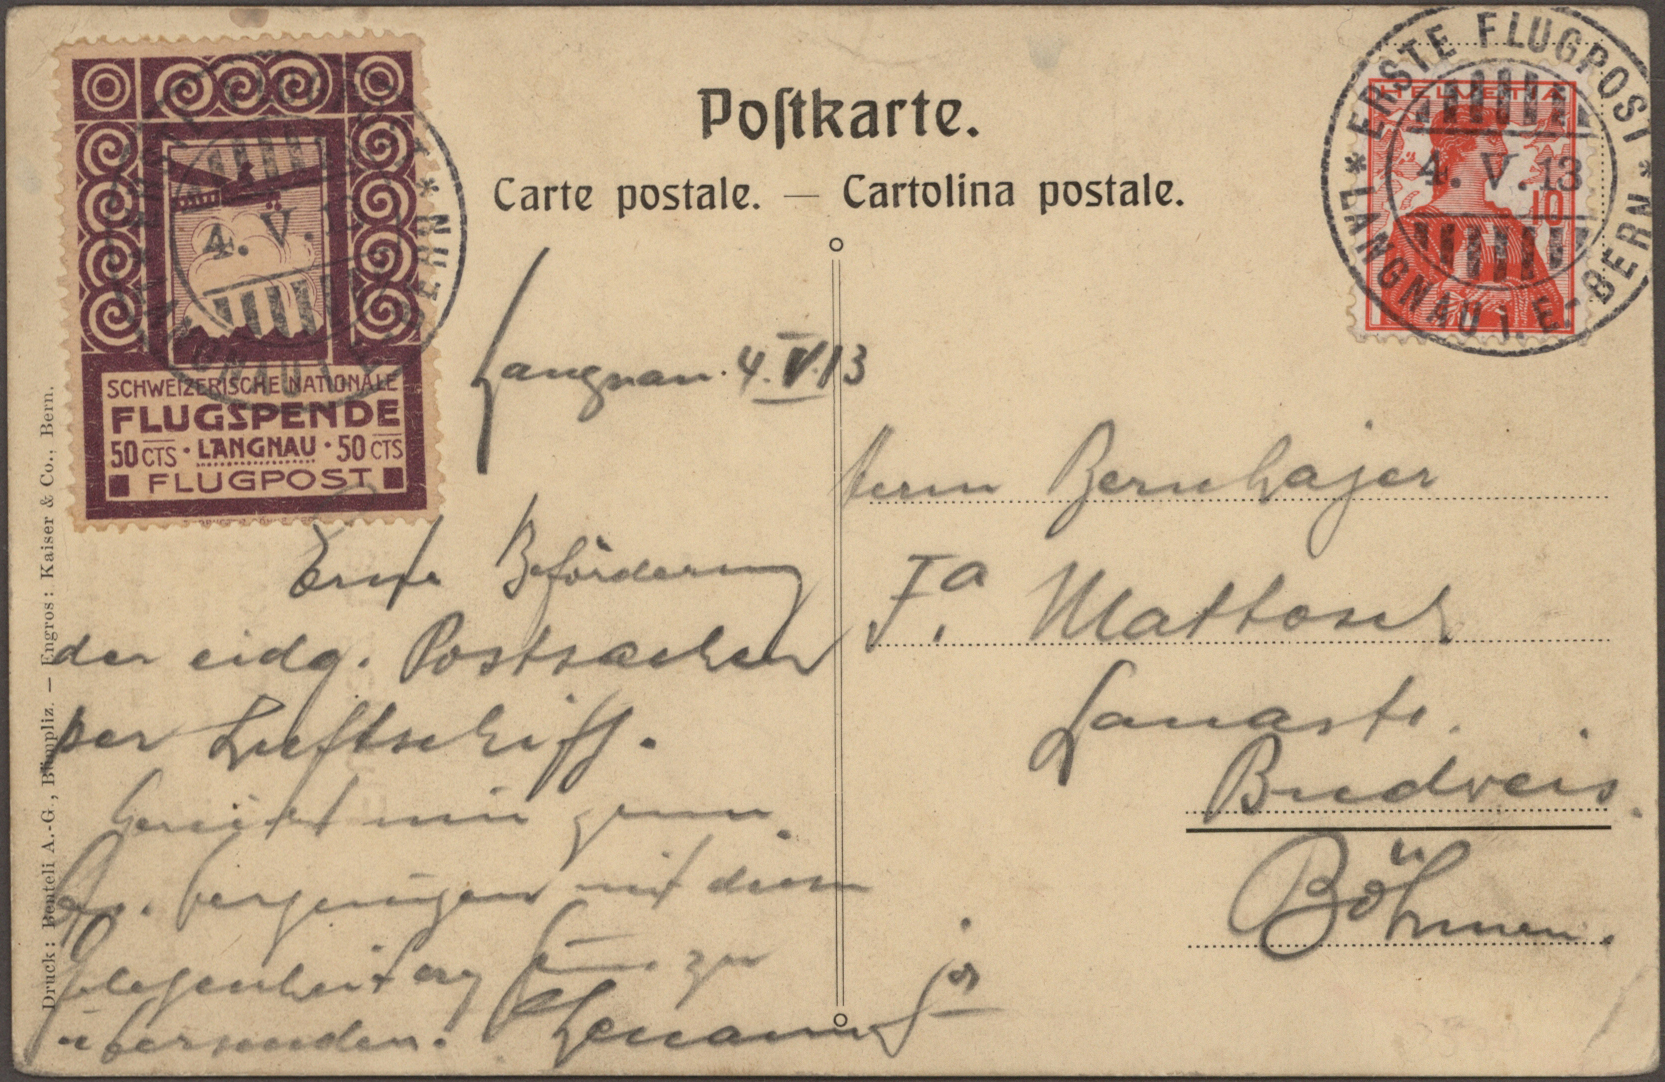 Postkarte.
Carte postale. — Cartolina postale.
ERSTE FLUGPOST * LANGNAU i. E.-BERN *
4. V. 13
HELVETIA
10
4. V. 1
LANGNAU i. E.-BERN
SCHWEIZERISCHE NATIONALE
FLUGSPENDE
50 CTS · LANGNAU · 50 CTS
FLUGPOST
Langnau. 4.V.13
Erste Beförderung
der eidg. Postsachen
per Luftschiff.
mir
mit
Gelegenheit zu
übersenden.
Herrn Bernhajer
Fa. Mattosch
Lanastr.
Budweis.
Böhmen.
Druck: Benteli A.-G., Bümpliz. — Engros: Kaiser & Co., Bern.